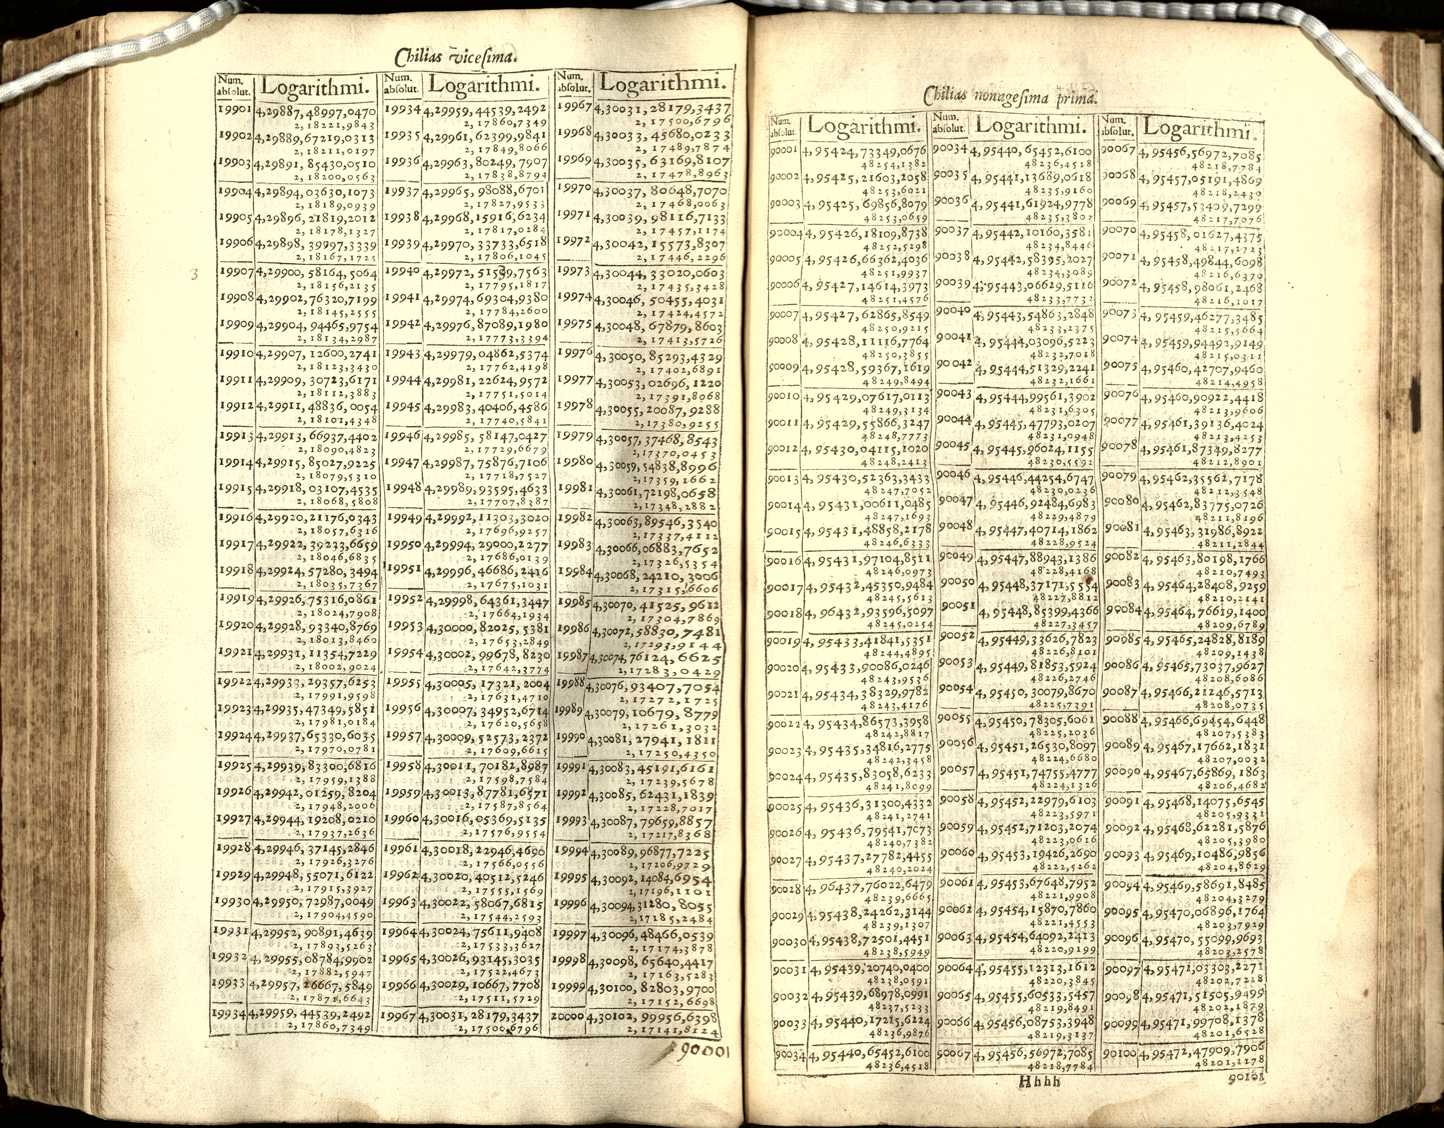 Chilias vicesima.
Num. absolut. Logarithmi.
19901 4,29887,48997,0470
2,18221,9843
19902 4,29889,67219,0313
2,18211,0197
19903 4,29891,85430,0510
2,18200,0563
19904 4,29894,03630,1073
2,18189,0939
19905 4,29896,21819,2012
2,18178,1327
19906 4,29898,39997,3339
2,18167,1725
19907 4,29900,58164,5064
2,18156,2135
19908 4,29902,76320,7199
2,18145,2555
19909 4,29904,94465,9754
2,18134,2987
19910 4,29907,12600,2741
2,18123,3430
19911 4,29909,30723,6171
2,18112,3883
19912 4,29911,48836,0054
2,18101,4348
19913 4,29913,66937,4402
2,18090,4823
19914 4,29915,85027,9225
2,18079,5310
19915 4,29918,03107,4535
2,18068,5808
19916 4,29920,21176,0343
2,18057,6316
19917 4,29922,39233,6659
2,18046,6835
19918 4,29924,57280,3494
2,18035,7367
19919 4,29926,75316,0861
2,18024,7908
19920 4,29928,93340,8769
2,18013,8460
19921 4,29931,11354,7229
2,18002,9024
19922 4,29933,29357,6253
2,17991,9598
19923 4,29935,47349,5851
2,17981,0184
19924 4,29937,65330,6035
2,17970,0781
19925 4,29939,83300,6816
2,17959,1388
19926 4,29942,01259,8204
2,17948,2006
19927 4,29944,19208,0210
2,17937,2636
19928 4,29946,37145,2846
2,17926,3276
19929 4,29948,55071,6122
2,17915,3927
19930 4,29950,72987,0049
2,17904,4590
19931 4,29952,90891,4639
2,17893,5263
19932 4,29955,08784,9902
2,17882,5947
19933 4,29957,26667,5849
2,17871,6643
19934 4,29959,44539,2492
2,17860,7349
Num. absolut. Logarithmi.
19934 4,29959,44539,2492
2,17860,7349
19935 4,29961,62399,9841
2,17849,8066
19936 4,29963,80249,7907
2,17838,8794
19937 4,29965,98088,6701
2,17827,9533
19938 4,29968,15916,6234
2,17817,0284
19939 4,29970,33733,6518
2,17806,1045
19940 4,29972,51539,7563
2,17795,1817
19941 4,29974,69304,9380
2,17784,2600
19942 4,29976,87089,1980
2,17773,3394
19943 4,29979,04862,5374
2,17762,4198
19944 4,29981,22624,9572
2,17751,5014
19945 4,29983,40406,4586
2,17740,5841
19946 4,29985,58147,0427
2,17729,6679
19947 4,29987,75876,7106
2,17718,7527
19948 4,29989,93595,4633
2,17707,8387
19949 4,29992,11303,3020
2,17696,9257
19950 4,29994,29000,2277
2,17686,0139
19951 4,29996,46686,2416
2,17675,1031
19952 4,29998,64361,3447
2,17664,1934
19953 4,30000,82025,5381
2,17653,2849
19954 4,30002,99678,8230
2,17642,3774
19955 4,30005,17321,2004
2,17631,4710
19956 4,30007,34952,6714
2,17620,5658
19957 4,30009,52573,2372
2,17609,6615
19958 4,30011,70182,8987
2,17598,7584
19959 4,30013,87781,6571
2,17587,8564
19960 4,30016,05369,5135
2,17576,9554
19961 4,30018,22946,4690
2,17566,0556
19962 4,30020,40512,5246
2,17555,1569
19963 4,30022,58067,6815
2,17544,2593
19964 4,30024,75611,9408
2,17533,3627
19965 4,30026,93145,3035
2,17522,4673
19966 4,30029,10667,7708
2,17511,5729
19967 4,30031,28179,3437
2,17500,6796
Num. absolut. Logarithmi.
19967 4,30031,28179,3437
2,17500,6796
19968 4,30033,45680,0233
2,17489,7874
19969 4,30035,63169,8107
2,17478,8963
19970 4,30037,80648,7070
2,17468,0063
19971 4,30039,98116,7133
2,17457,1174
19972 4,30042,15573,8307
2,17446,2296
19973 4,30044,33020,0603
2,17435,3428
19974 4,30046,50455,4031
2,17424,4572
19975 4,30048,67879,8603
2,17413,5726
19976 4,30050,85293,4329
2,17402,6891
19977 4,30053,02696,1220
2,17391,8068
19978 4,30055,20087,9288
2,17380,9255
19979 4,30057,37468,8543
2,17370,0453
19980 4,30059,54838,8996
2,17359,1662
19981 4,30061,72198,0658
2,17348,2882
19982 4,30063,89546,3540
2,17337,4112
19983 4,30066,06883,7652
2,17326,5354
19984 4,30068,24210,3006
2,17315,6606
19985 4,30070,41525,9612
2,17304,7869
19986 4,30072,58830,7481
2,17293,9144
19987 4,30074,76124,6625
2,17283,0429
19988 4,30076,93407,7054
2,17272,1725
19989 4,30079,10679,8779
2,17261,3032
19990 4,30081,27941,1811
2,17250,4350
19991 4,30083,45191,6161
2,17239,5678
19992 4,30085,62431,1839
2,17228,7017
19993 4,30087,79659,8857
2,17217,8368
19994 4,30089,96877,7225
2,17206,9729
19995 4,30092,14084,6954
2,17196,1101
19996 4,30094,31280,8055
2,17185,2484
19997 4,30096,48466,0539
2,17174,3878
19998 4,30098,65640,4417
2,17163,5283
19999 4,30100,82803,9700
2,17152,6698
20000 4,30102,99956,6398
2,17141,8124
90001
3
Chilias nonagesima prima.
Num. absolut. Logarithmi.
90001 4,95424,73349,0676
48254,1382
90002 4,95425,21603,2058
48253,6021
90003 4,95425,69856,8079
48253,0659
90004 4,95426,18109,8738
48252,5298
90005 4,95426,66362,4036
48251,9937
90006 4,95427,14614,3973
48251,4576
90007 4,95427,62865,8549
48250,9215
90008 4,95428,11116,7764
48250,3855
90009 4,95428,59367,1619
48249,8494
90010 4,95429,07617,0113
48249,3134
90011 4,95429,55866,3247
48248,7773
90012 4,95430,04115,1020
48248,2413
90013 4,95430,52363,3433
48247,7052
90014 4,95431,00611,0485
48247,1693
90015 4,95431,48858,2178
48246,6333
90016 4,95431,97104,8511
48246,0973
90017 4,95432,45350,9484
48245,5613
90018 4,96432,93596,5097
48245,0254
90019 4,95433,41841,5351
48244,4895
90020 4,95433,90086,0246
48243,9536
90021 4,95434,38329,9782
48243,4176
90022 4,95434,86573,3958
48242,8817
90023 4,95435,34816,2775
48242,3458
90024 4,95435,83058,6233
48241,8099
90025 4,95436,31300,4332
48241,2741
90026 4,95436,79541,7073
48240,7382
90027 4,95437,27782,4455
48240,2024
90028 4,96437,76022,6479
48239,6665
90029 4,95438,24262,3144
48239,1307
90030 4,95438,72501,4451
48238,5949
90031 4,95439,20740,0400
48238,0591
90032 4,95439,68978,0991
48237,5233
90033 4,95440,17215,6224
48236,9876
90034 4,95440,65452,6100
48236,4518
Num. absolut. Logarithmi.
90034 4,95440,65452,6100
48236,4518
90035 4,95441,13689,0618
48235,9160
90036 4,95441,61924,9778
48235,3803
90037 4,95442,10160,3581
48234,8446
90038 4,95442,58395,2027
48234,3089
90039 4,95443,06629,5116
48233,7732
90040 4,95443,54863,2848
48233,2375
90041 4,95444,03096,5223
48232,7018
90042 4,95444,51329,2241
48232,1661
90043 4,95444,99561,3902
48231,6305
90044 4,95445,47793,0207
48231,0948
90045 4,95445,96024,1155
48230,5592
90046 4,95446,44254,6747
48230,0236
90047 4,95446,92484,6983
48229,4879
90048 4,95447,40714,1862
48228,9524
90049 4,95447,88943,1386
48228,4168
90050 4,95448,37171,5554
48227,8812
90051 4,95448,85399,4366
48227,3457
90052 4,95449,33626,7823
48226,8101
90053 4,95449,81853,5924
48226,2746
90054 4,95450,30079,8670
48225,7391
90055 4,95450,78305,6061
48225,2036
90056 4,95451,26530,8097
48224,6680
90057 4,95451,74755,4777
48224,1326
90058 4,95452,22979,6103
48223,5971
90059 4,95452,71203,2074
48223,0616
90060 4,95453,19426,2690
48222,5262
90061 4,95453,67648,7952
48221,9908
90062 4,95454,15870,7860
48221,4553
90063 4,95454,64092,2413
48220,9199
90064 4,95455,12313,1612
48220,3845
90065 4,95455,60533,5457
48219,8491
90066 4,95456,08753,3948
48219,3137
90067 4,95456,56972,7085
48218,7784
Num. absolut. Logarithmi.
90067 4,95456,56972,7085
48218,7784
90068 4,95457,05191,4869
48218,2430
90069 4,95457,53409,7299
48217,7076
90070 4,95458,01627,4375
48217,1723
90071 4,95458,49844,6098
48216,6370
90072 4,95458,98061,2468
48216,1017
90073 4,95459,46277,3485
48215,5664
90074 4,95459,94492,9149
48215,0311
90075 4,95460,42707,9460
48214,4958
90076 4,95460,90922,4418
48213,9606
90077 4,95461,39136,4024
48213,4253
90078 4,95461,87349,8277
48212,8901
90079 4,95462,35562,7178
48212,3548
90080 4,95462,83775,0726
48211,8196
90081 4,95463,31986,8922
48211,2844
90082 4,95463,80198,1766
48210,7493
90083 4,95464,28408,9259
48210,2141
90084 4,95464,76619,1400
48209,6789
90985 4,95465,24828,8189
48209,1438
90086 4,95465,73037,9627
48208,6086
90087 4,95466,21246,5713
48208,0735
90088 4,95466,69454,6448
48207,5383
90089 4,95467,17662,1831
48207,0032
90090 4,95467,65869,1863
48206,4682
90091 4,95468,14075,6545
48205,9331
90092 4,95468,62281,5876
48205,3980
90093 4,95469,10486,9856
48204,8629
90094 4,95469,58691,8485
48204,3279
90095 4,95470,06896,1764
48203,7929
90096 4,95470,55099,9693
48203,2578
90097 4,95471,03303,2271
48202,7228
90098 4,95471,51505,9499
48202,1879
90099 4,95471,99708,1378
48201,6528
90100 4,95472,47909,7906
48201,1178
Hhhh
90101